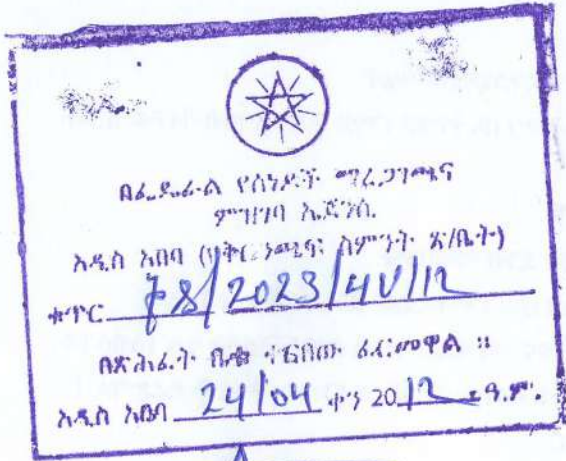 በፌዴራል የሰነዶች ማረጋገጫና
ምዝገባ ኤጀንሲ
አዲስ አበባ ስምንት ጽ/ቤት)
ቁጥር /2023/4ህ/12
በጽሕፈት ቤቱ ቀርበው ፈርመዋል ።
አዲስ አበባ 24/04 ቀን 2012 ዓ.ም.